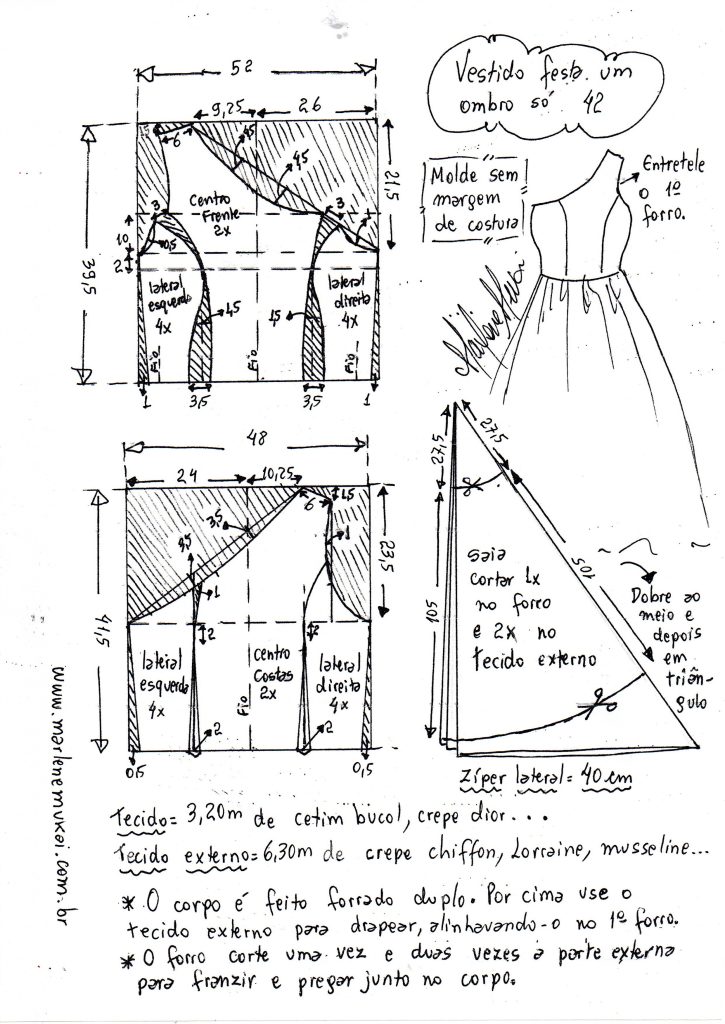 Vestido festa um
ombro só 42
Molde sem
margem
de costura
Entretele
o 1º
forro.
52
9,25
26
1,5
6
4,5
4,5
21,5
39,5
Centro
Frente
2x
3
3
10
0,5
2
lateral
esquerdo
4x
lateral
direita
4x
1,5
1,5
Fio
Fio
Fio
1
3,5
3,5
1
48
24
10,25
1,5
6
3,5
3,5
1
1
23,5
41,5
2
2
lateral
esquerdo
4x
centro
Costas
2x
lateral
direita
4x
Fio
0,5
2
2
0,5
27,5
27,5
105
105
saia
cortar 1x
no forro
e 2x no
tecido externo
Dobre ao
meio e
depois
em
triân-
gulo
Zíper lateral = 40 cm
www.marlenemukai.com.br
Tecido= 3,20m de cetim bucol, crepe dior...
Tecido externo= 6,30m de crepe chiffon, Lorraine, musseline...
* O corpo é feito forrado duplo. Por cima use o
tecido externo para drapear, alinhavando-o no 1º forro.
* O forro corte uma vez e duas vezes a parte externa
para franzir e pregar junto no corpo.